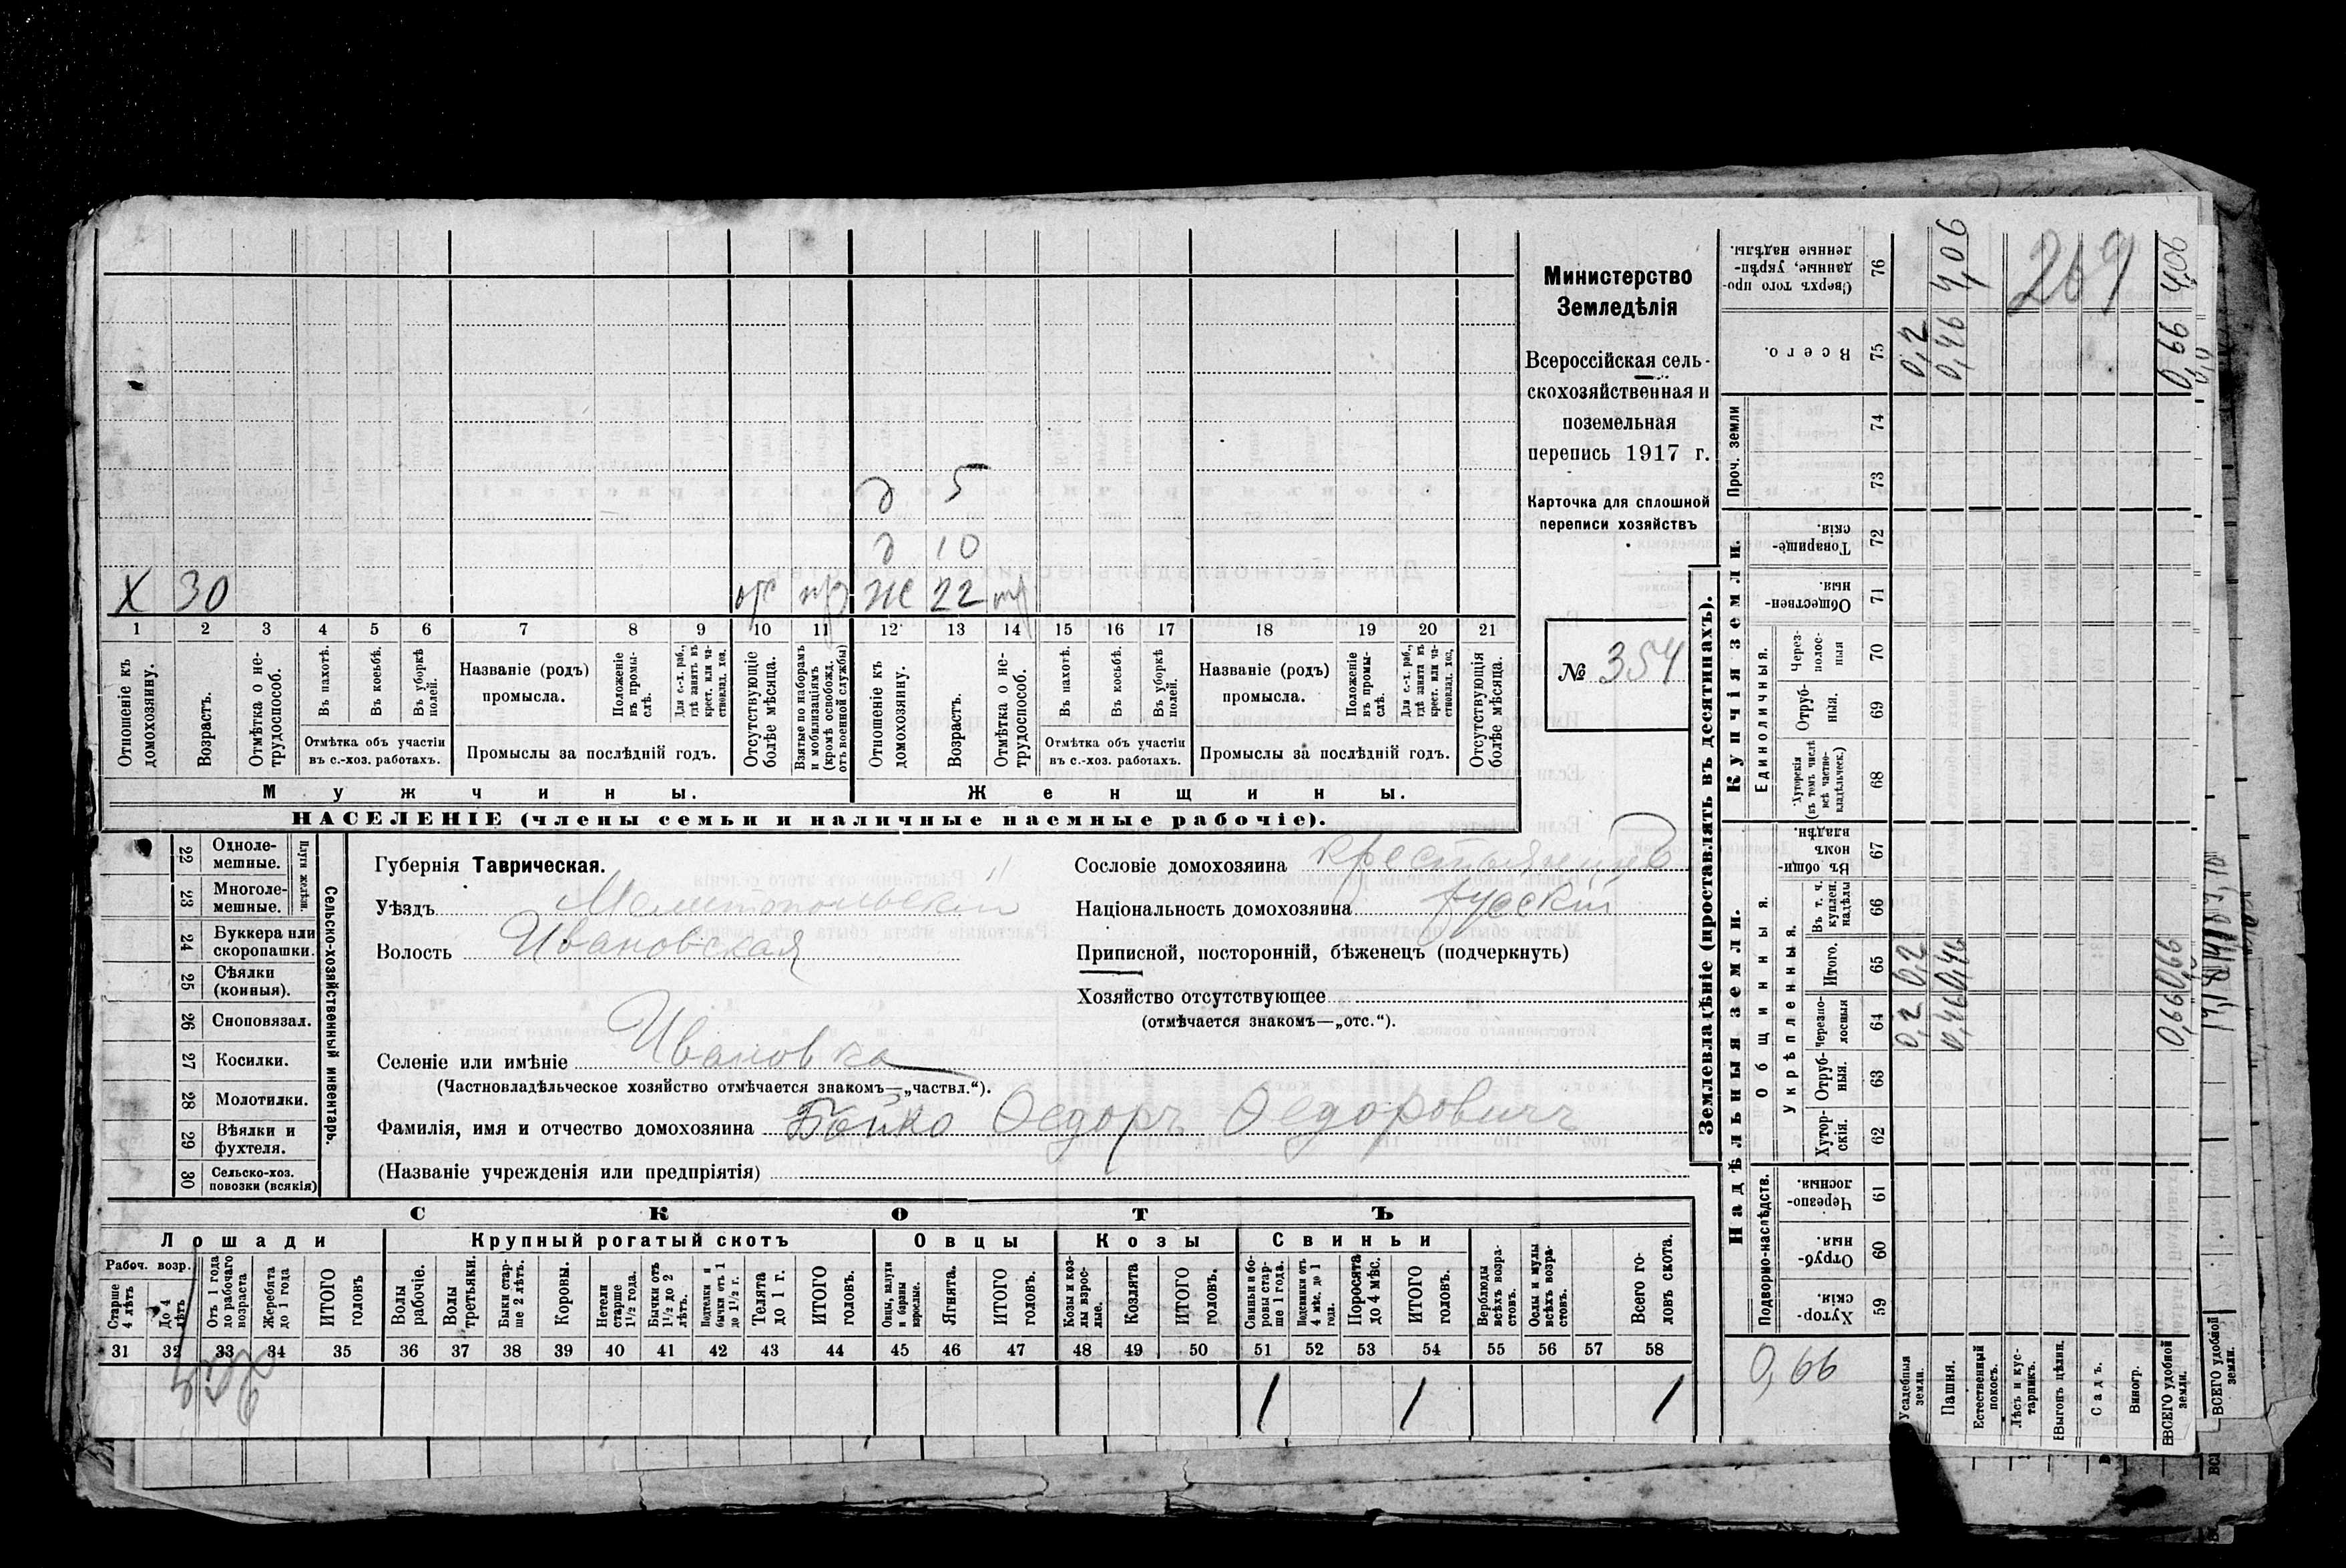 д 5
д 10
Х 30 отс пр Ж 22 тр
1 2 3 4 5 6 7 8 9 10 11 12 13 14 15 16 17 18 19 20 21
Отношеніе къ домохозяину.
Возрастъ.
Отмѣтка о нетрудоспособ.
Въ пахотѣ.
Въ косьбѣ.
Въ уборкѣ полей.
Отмѣтка объ участіи
въ с.-хоз. работахъ.
Названіе (родъ)
промысла.
Положеніе въ промыслѣ.
Для с.-х. раб., гдѣ занятъ въ крест. или частновлад. хоз.
Промыслы за послѣдній годъ.
Отсутствующіе болѣе мѣсяца.
Взятые по наборамъ и мобилизаціямъ (кромѣ освобожд. отъ военной службы)
Отношеніе къ домохозяину.
Возрастъ.
Отмѣтка о нетрудоспособ.
Въ пахотѣ.
Въ косьбѣ.
Въ уборкѣ полей.
Отмѣтка объ участіи
въ с.-хоз. работахъ.
Названіе (родъ)
промысла.
Положеніе въ промыслѣ.
Для с.-х. раб., гдѣ занятъ въ крест. или частновлад. хоз.
Промыслы за послѣдній годъ.
Отсутствующія болѣе мѣсяца.
Мужчины. Женщины.
НАСЕЛЕНІЕ (члены семьи и наличные наемные рабочіе).
Министерство
Земледѣлія
Всероссійская сель-
скохозяйственная и
поземельная
перепись 1917 г.
Карточка для сплошной
переписи хозяйствъ
№ 354
22 Одноле-
мешные.
23 Многоле-
мешные.
Плуги желѣзн.
24 Буккера или
скоропашки.
25 Сѣялки
(конныя).
26 Сноповязал.
27 Косилки.
28 Молотилки.
29 Вѣялки и
фухтеля.
30 Сельско-хоз.
повозки (всякія)
Сельско-хозяйственный инвентарь.
Губернія Таврическая.
Уѣздъ Мелитопольскій
Волость Ивановская
Селеніе или имѣніе Ивановка
(Частновладѣльческое хозяйство отмѣчается знакомъ—„частвл.“).
Фамилія, имя и отчество домохозяина Бойко Ѳедоръ Ѳедоровичъ
(Названіе учрежденія или предпріятія)
Сословіе домохозяина
Національность домохозяина русскій
Приписной, посторонній, бѣженецъ (подчеркнуть)
Хозяйство отсутствующее
(отмѣчается знакомъ—„отс.“).
СКОТЪ
Лошади Крупный рогатый скотъ Овцы Козы Свиньи
Рабоч. возр.
Старше 4 лѣтъ
До 4 лѣтъ
Отъ 1 года до рабочаго возраста
Жеребята до 1 года
ИТОГО головъ
Волы рабочіе.
Волы третьяки.
Быки старше 2 лѣтъ.
Коровы.
Нетели старше 1½ года.
Бычки отъ 1½ до 2 лѣтъ.
Подтелки и бычки отъ 1 до 1½ г.
Телята до 1 г.
ИТОГО головъ.
Овцы, валухи и бараны взрослые.
Ягнята.
ИТОГО головъ.
Козы и козлы взрослые.
Козлята
ИТОГО головъ.
Свиньи и боровы старше 1 года.
Подсвинки отъ 4 мѣс. до 1 года.
Поросята до 4 мѣс.
ИТОГО головъ.
Верблюды всѣхъ возрастовъ.
Ослы и мулы всѣхъ возрастовъ.
Всего головъ скота.
31 32 33 34 35 36 37 38 39 40 41 42 43 44 45 46 47 48 49 50 51 52 53 54 55 56 57 58
1 1 1
Землевладѣніе (проставлять въ десятинахъ).
Надѣльныя земли.
Купчія земли.
Проч. земли
Подворно-наслѣдств.
Общинныя.
Укрѣпленныя.
Единоличныя.
Хуторскія 59
Отрубныя 60
Черезполосныя. 61
Хуторскія. 62
Отрубныя. 63
Черезполосныя 64
Итого. 65
Въ т. ч. куплен. надѣлы 66
Въ общинномъ владѣн. 67
Хуторскія (въ томъ числѣ всѣ частновладѣльческ.) 68
Отрубныя. 69
Черезполосныя 70
Общественныя. 71
Товарищескія. 72
73
74
Всего. 75
Сверхъ того проданные, укрѣпленные надѣлы. 76
0,66
Усадебныя земли. 0,2 0,2 0,2
Пашня. 0,46 0,46 0,46 4,06
Естественный покосъ.
Лѣсъ и кустарникъ.
Выгонъ цѣлин.
Садъ.
Виногр.
ВСЕГО удобной земли. 0,66 0,66 0,66 4,06
269
ВСЕГО удобной земли.